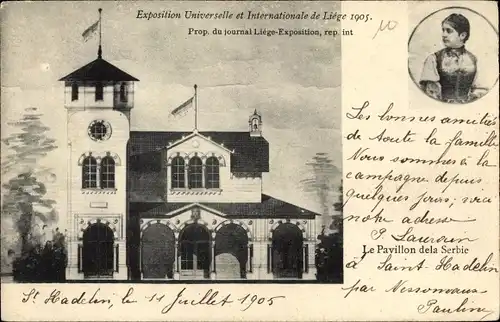 Exposition Universelle et Internationale de Liége 1905.
Prop. du journal Liége-Exposition, rep. int
Les bonnes amitiés
de toute la famille
Nous sommes à la
campagne depuis
quelques jours; voici
notre adresse
P.
Le Pavillon dela Serbie
à Saint-Hadelin
par Nessonvaux
Pauline
St Hadelin, le 11 Juillet 1905